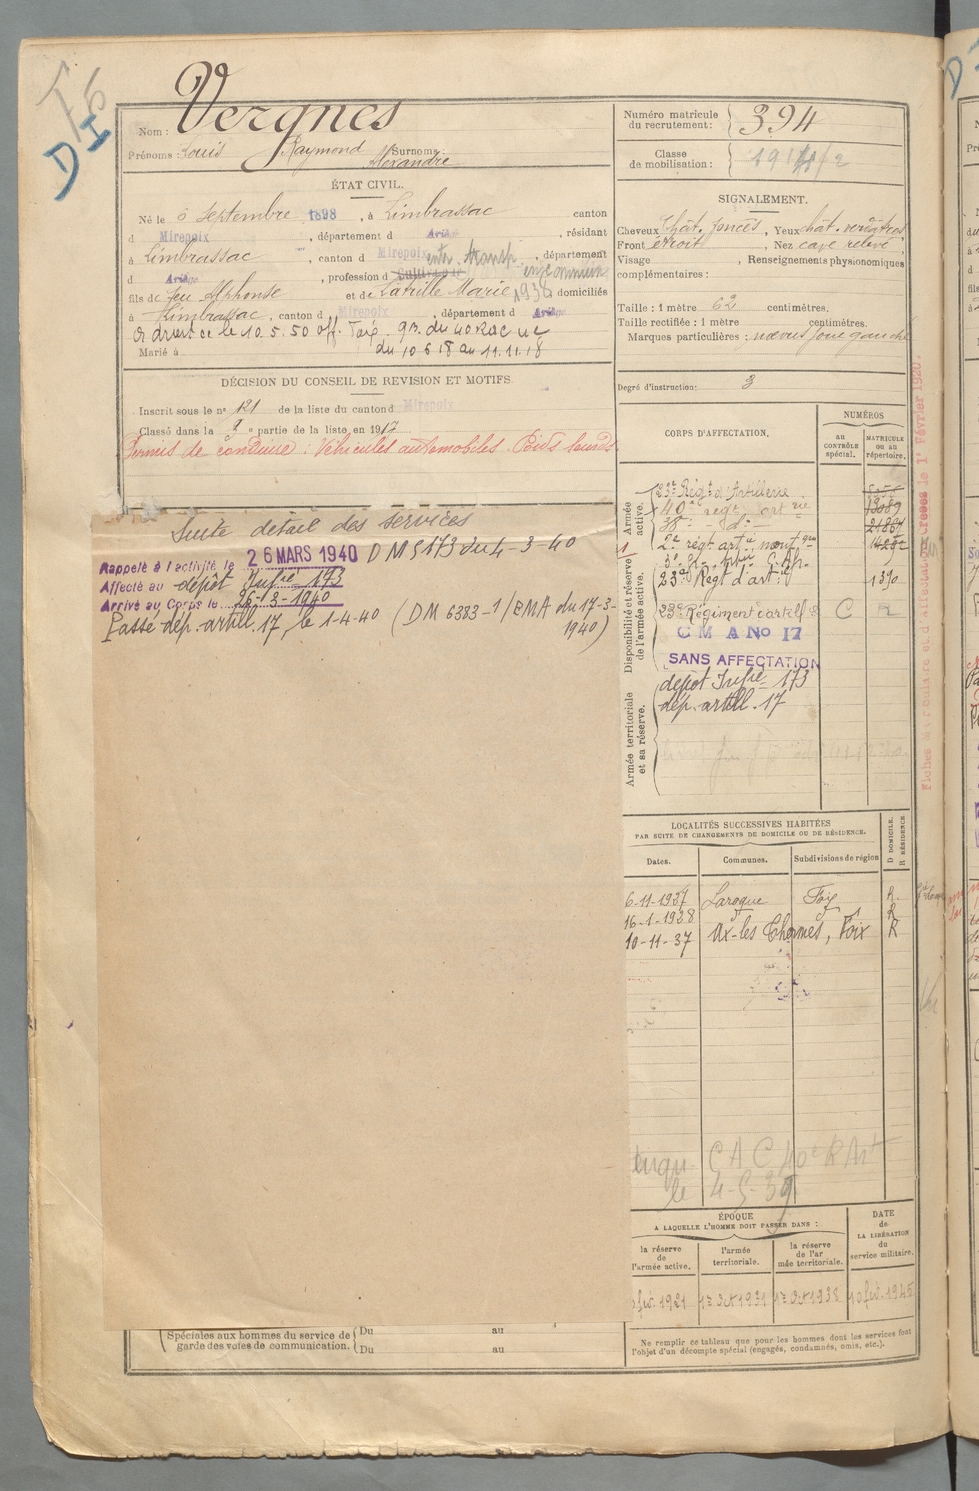 Vergnes
Nom :
Prénoms : Louis Raymond Alexandre Surnoms :
ÉTAT CIVIL.
Né le 6 septembre 1898, à Limbrassac canton
d Mirepoix, département d Ariège, résidant
à Limbrassac, canton d Mirepoix, département
d Ariège, profession d Cultivateur entr. transp.
fils de feu Alphonse et de Latrille Marie 1938, domiciliés
à Limbrassac, canton d Mirepoix, département d Ariège
divorcé le 10.5.50 off. 9B. du 40 RAC
Marié à du 10 6 18 au 11.11.18
DÉCISION DU CONSEIL DE REVISION ET MOTIFS.
Inscrit sous le n° 121 de la liste du canton d Mirepoix
Classé dans la 1e partie de la liste en 1917
Permis de conduire : Véhicules automobiles. Poids lourds.
Suite détail des services
Rappelé à l'activité le 26 MARS 1940 D M 5173 du 4-3-40
Affecté au dépôt Infie 173
Arrivé au Corps le 26-3-1940
Passé dép. artill. 17, le 1-4-40 (DM 6383-1/EMA du 17-3-
1940)
Spéciales aux hommes du service de garde des voies de communication.
Du au
Du au
Numéro matricule du recrutement : 394
Classe de mobilisation :
SIGNALEMENT.
Cheveux chât. foncés, Yeux chât. verdâtres
Front étroit, Nez cave relevé
Visage , Renseignements physionomiques
complémentaires :
Taille : 1 mètre 62 centimètres.
Taille rectifiée : 1 mètre centimètres.
Marques particulières : nævus joue gauche
Degré d'instruction : 3
CORPS D'AFFECTATION.
NUMÉROS
au CONTRÔLE spécial.
MATRICULE ou au répertoire.
Disponibilité et réserve de l'armée active.
Armée active.
23e Régt d'Artillerie
40e régt artrie
38e d°
2e régt artie mont.gne 14232
23e Régt d'artie 1390
23e Régiment d'artill C R
C M A No 17
SANS AFFECTATION
Armée territoriale et sa réserve.
dépôt Infie 173
dép. artill. 17
LOCALITÉS SUCCESSIVES HABITÉES
PAR SUITE DE CHANGEMENTS DE DOMICILE OU DE RÉSIDENCE.
Dates. Communes. Subdivisions de région D DOMICILE. R RÉSIDENCE
6-11-1927 Laroque Foix R.
16-1-1928 R
10-11-37 Ax-les Thermes, Foix R
C A C 40e R Art
le 4-5-39
ÉPOQUE
A LAQUELLE L'HOMME DOIT PASSER DANS :
la réserve de l'armée active.
l'armée territoriale.
la réserve de l'armée territoriale.
DATE de LA LIBÉRATION du service militaire.
fév. 1921 1er Oct 1931 1er Oct 1938 10 fév. 1945
Ne remplir ce tableau que pour les hommes dont les services font
l'objet d'un décompte spécial (engagés, condamnés, omis, etc.).